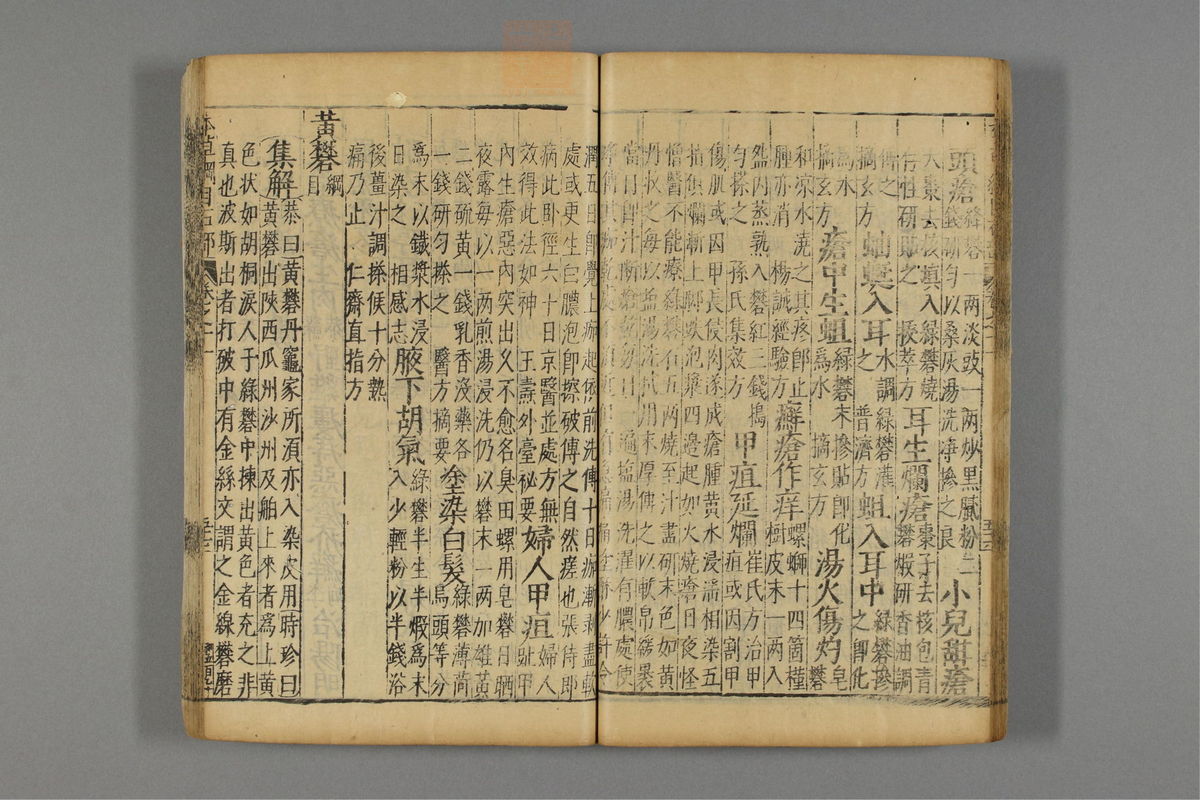 頭瘡
絳礬一兩淡豉一兩炒黑膩粉二
錢研匀以桑灰湯洗淨摻之良
小兒甜瘡
大棗去核填入綠礬燒
存性研貼之　拔萃方
耳生爛瘡
棗子去核包青
礬煅研香油調
傅之
摘玄方
蚰蜒入耳
水調綠礬灌
之　普濟方
蛆入耳中
綠礬摻
之即化
為水
摘玄方
瘡中生蛆
綠礬末摻貼即化
為水　摘玄方
湯火傷灼
皂
礬
和凉水澆之其疼即止
腫亦消　楊誠經驗方
癬瘡作痒
螺螄十四箇槿
樹皮末一兩入
盌內蒸熟入礬紅三錢搗
匀搽之　孫氏集效方
甲疽延爛
崔氏方治甲
疽或因割甲
傷肌或因甲長侵肉遂成瘡腫黄水浸淫相染五
指俱爛漸上脚趺泡漿四邊起如火燒瘡日夜怪
憎醫不能療綠礬石五兩燒至汁盡研末色如黄
丹收之每以鹽湯洗拭用末厚傅之以軟帛緩裹
當日即汁斷瘡乾每日一遍鹽湯洗濯有膿處使
淨傅其痂乾處不須近但有急痛即塗酥少許令
潤五日即覺上痂起依前洗傅十日痂漸剥盡軟
處或更生白膿泡即擦破傅之自然瘥也張侍即
病此臥徑六十日京醫並處方無
效得此法如神　王壽外臺秘要
婦人甲疽
婦人
趾甲
內生瘡惡肉突出久不愈名臭田螺用皂礬日晒
夜露每以一兩煎湯浸洗仍以礬末一兩加雄黄
二錢硫黄一錢乳香沒藥各
一錢研匀搽之　醫方摘要
塗染白髮
綠礬薄荷
烏頭等分
為末以鐵漿水浸
日染之　相感志
腋下胡氣
綠礬半生半煅為末
入少輕粉以半錢浴
後薑汁調搽候十分熱
痛乃止　仁齋直指方
黄礬
綱
目
集解
恭曰黄礬丹竈家所須亦入染皮用時珍曰
黄礬出陝西瓜州沙州及舶上來者為上黄
色状如胡桐淚人于綠礬中揀出黄色者充之非
真也波斯出者打破中有金絲文謂之金線礬磨
本草綱目石部　卷之十一